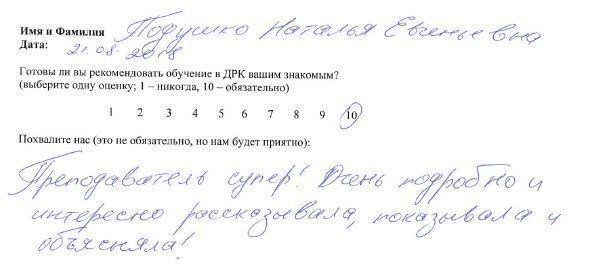 Имя и Фамилия Подушко Наталья Евгеньевна
Дата: 21.08.2018
Готовы ли вы рекомендовать обучение в ДРК вашим знакомым?
(выберите одну оценку; 1 – никогда, 10 – обязательно)
1 2 3 4 5 6 7 8 9 10
Похвалите нас (это не обязательно, но нам будет приятно):
Преподаватель супер! Очень подробно и
интересно рассказывала, показывала и
объясняла!